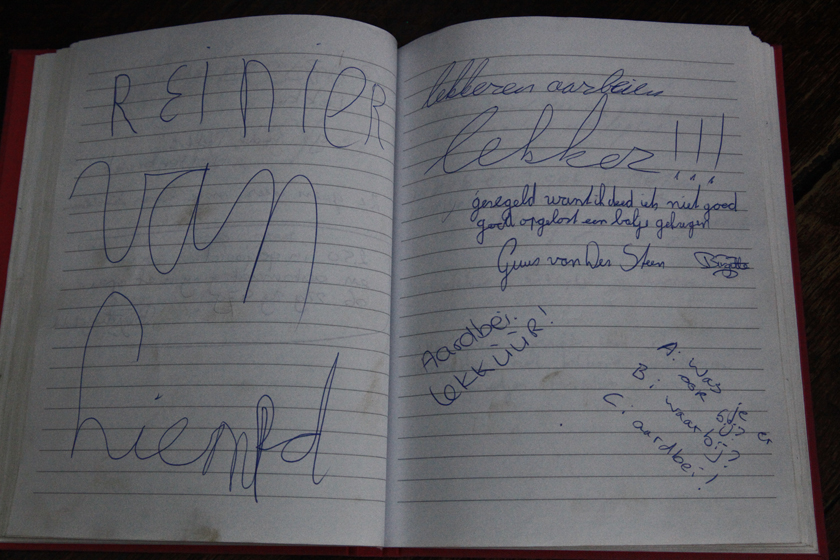 REINIER
van
lekkeren aarbeien
lekker!!!
geregeld want ik deed iets niet goed
goed opgelost een bakje gekregen
Guus van der Steen
Aardbei.
LekkÜÜR!
A: was je er
ook bij?
B: waarbij?
C: aardbei!